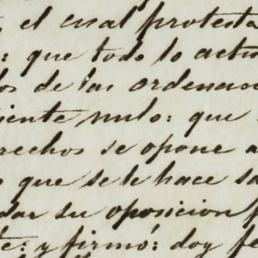 , el cual protesta
: que todo lo actu
os de las ordenan
iente nulo: que
rechos se opone a
que se le hace sa
dar su oposicion
te: y firmó: doy fe